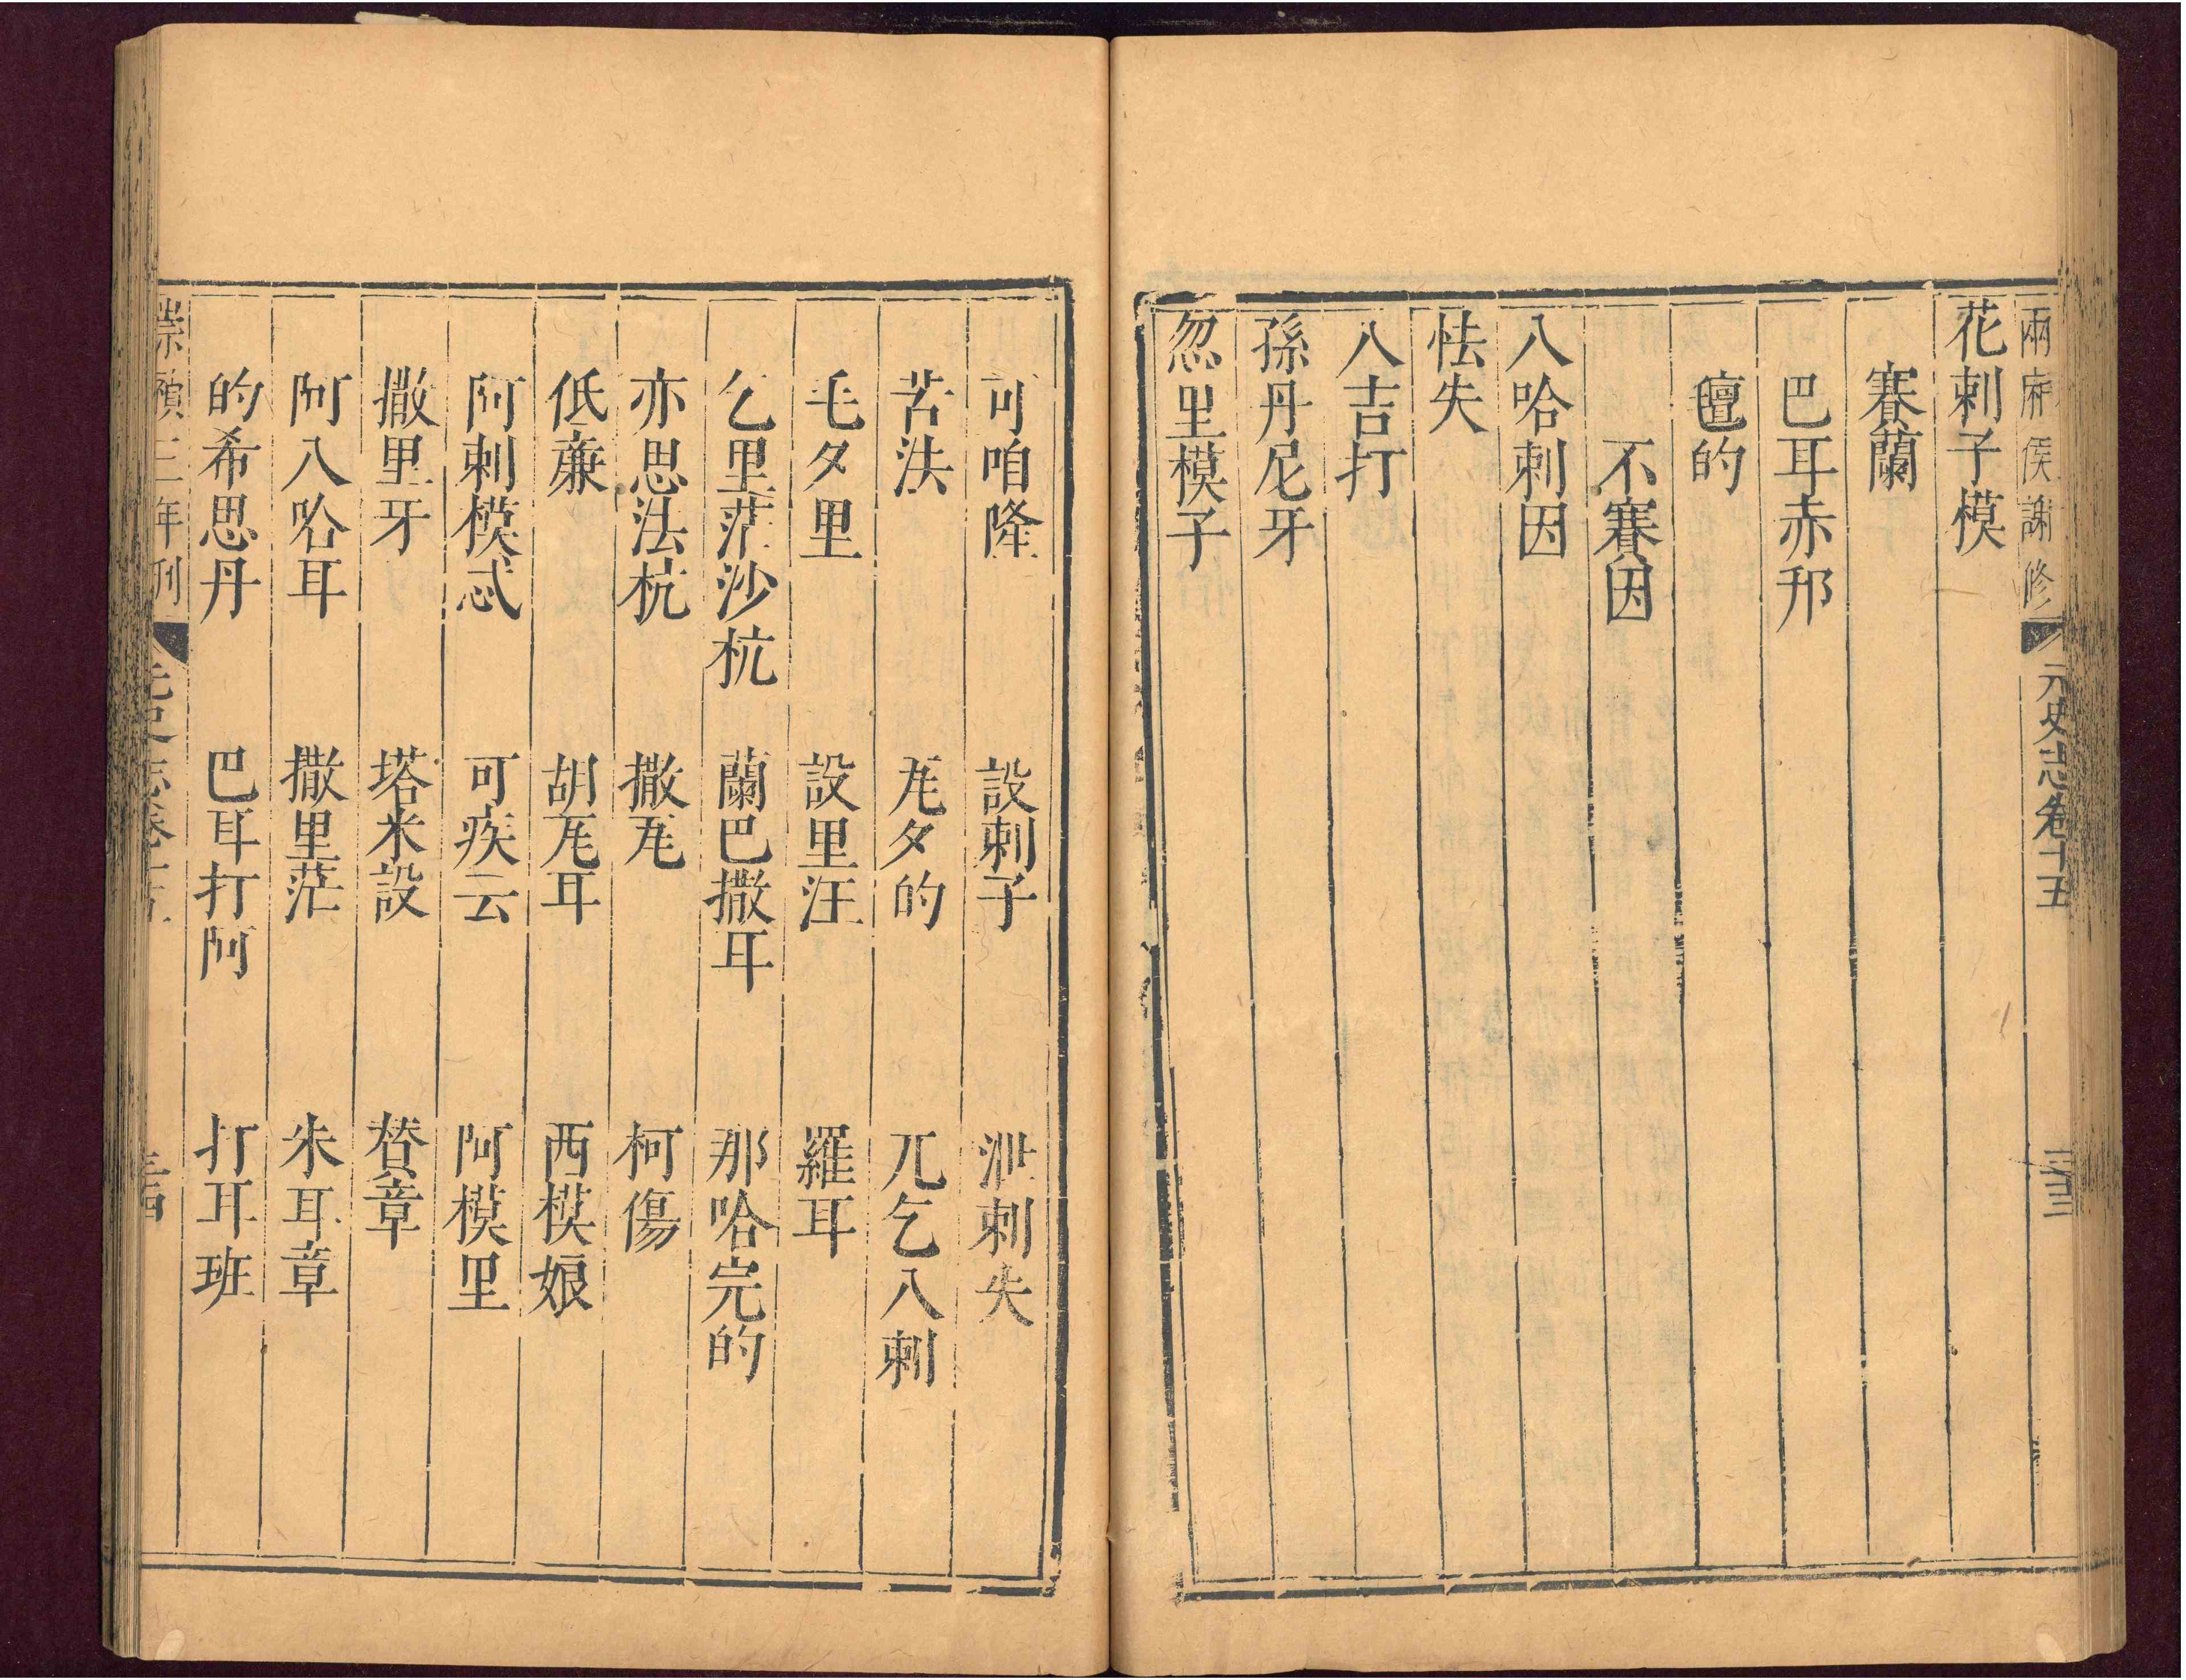 兩廂侯謝修 元史志卷十五 三十三
花剌子模
賽蘭
巴耳赤邗
氊的
不賽因
八哈剌因
怯失
八吉打
孫丹尼牙
忽里模子
可咱隆 設剌子 泄剌失
苦法 瓦夕的 兀乞八剌
毛夕里 設里汪 羅耳
乞里茫沙杭 蘭巴撒耳 那哈完的
亦思法杭 撒瓦 柯傷
低廉 胡瓦耳 西模娘
阿剌模忒 可疾云 阿模里
撒里牙 塔米設 賛章
阿八哈耳 撒里茫 朱耳章
的希思丹 巴耳打阿 打耳班
崇禎三年刊 元史志卷十五